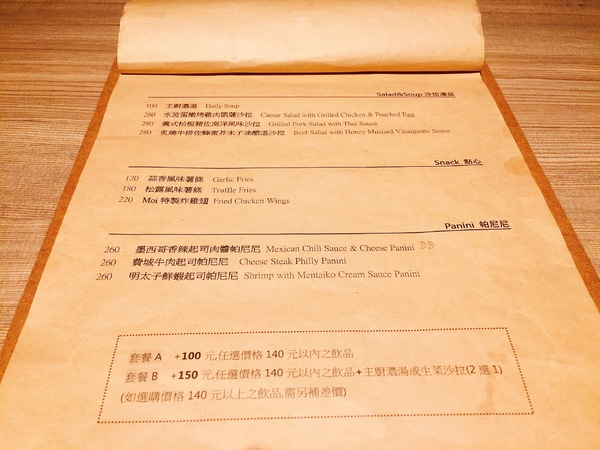 Salad&Soup 沙拉湯品
100 主廚濃湯 Daily Soup
280 水波蛋嫩烤雞肉凱薩沙拉 Caesar Salad with Grilled Chicken & Poached Egg
280 義式松板豬佐南洋風味沙拉 Grilled Pork Salad with Thai Sauce
280 炙燒牛排佐蜂蜜芥末子油醋溫沙拉 Beef Salad with Honey Mustard Vinaigrette Sauce
Snack 點心
120 蒜香風味薯條 Garlic Fries
180 松露風味薯條 Truffle Fries
220 Moi 特製炸雞翅 Fried Chicken Wings
Panini 帕尼尼
260 墨西哥香辣起司肉醬帕尼尼 Mexican Chili Sauce & Cheese Panini
260 費城牛肉起司帕尼尼 Cheese Steak Philly Panini
260 明太子鮮蝦起司帕尼尼 Shrimp with Mentaiko Cream Sauce Panini
套餐 A +100 元,任選價格 140 元以內之飲品
套餐 B +150 元,任選價格 140 元以內之飲品+主廚濃湯或生菜沙拉(2 選 1)
(如選購價格 140 元以上之飲品,需另補差價)